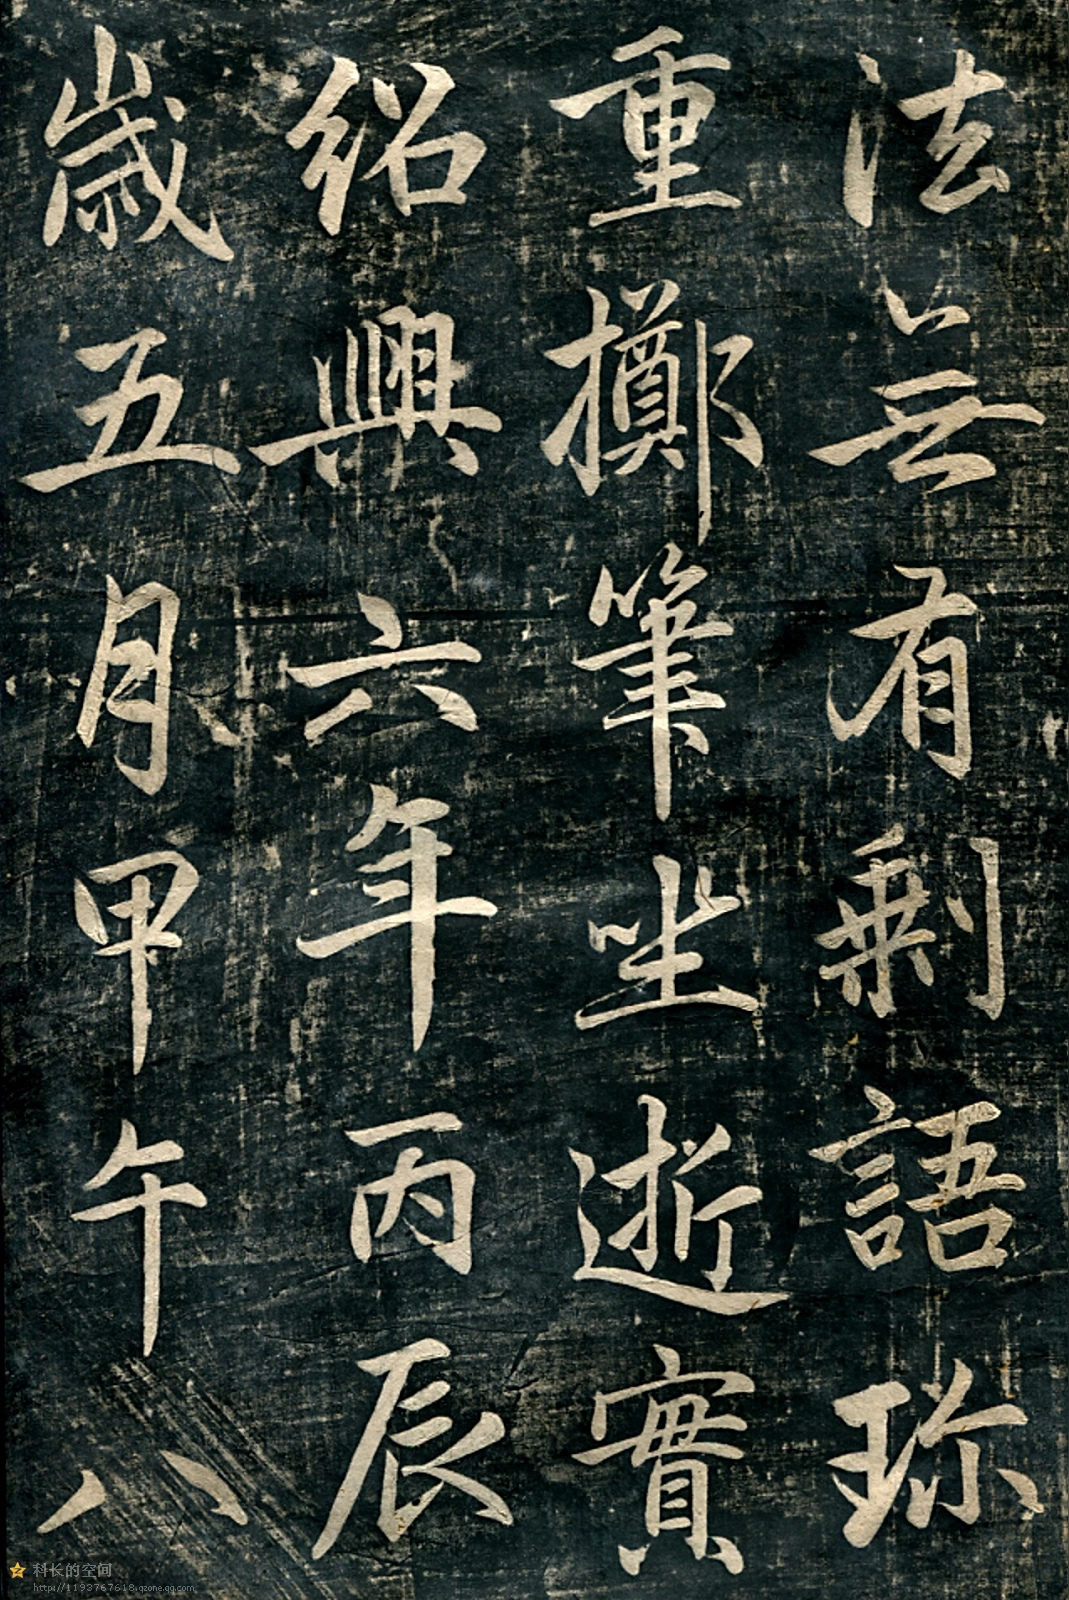 法無有剩語珎
重擲筆坐逝實
紹興六年丙辰
歲五月甲午八
科长的空间
http://1193767618.qzone.qq.com